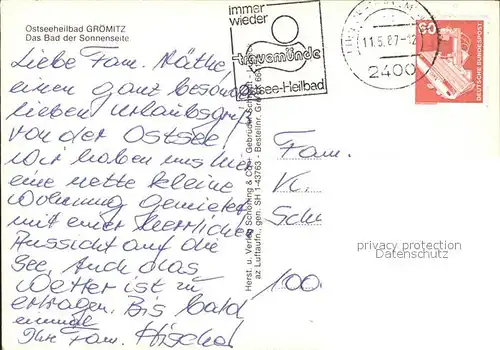 Ostseeheilbad GRÖMITZ
Das Bad der Sonnenseite
Liebe Fam. Käthe
einen ganz besond
lieben Urlaubsgruß
von der Ostsee
Wir haben uns hier
eine nette kleine
Wohnung gemietet
mit einer herrlichen
Aussicht auf die
See. Auch das
Wetter ist zu
ertragen. Bis bald
einmal
Ihre Fam.
immer
wieder
travemünde
Ostsee-Heilbad
11.5.87-12
2400
60
DEUTSCHE BUNDESPOST
Herst. u. Verlag Schöning & Co + Gebrüder Schmidt
az Luftaufn., gen. SH 1-43763 - Bestellnr.
Fam.
K.
Sch
100
privacy protection
Datenschutz